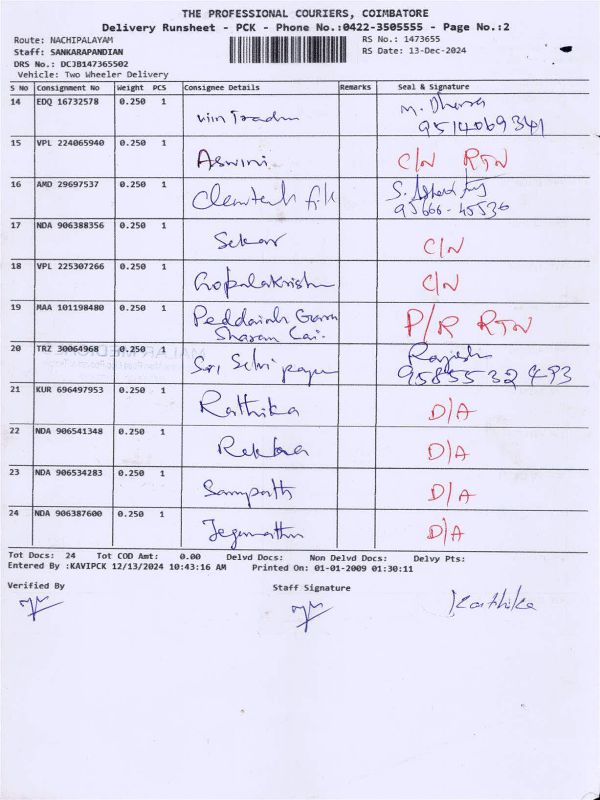 THE PROFESSIONAL COURIERS, COIMBATORE
Delivery Runsheet - PCK - Phone No.:0422-3505555 - Page No.:2
Route: NACHIPALAYAM RS No.: 1473655
Staff: SANKARAPANDIAN RS Date: 13-Dec-2024
DRS No.: DCJB147365502
Vehicle: Two Wheeler Delivery
S No Consignment No Weight PCS Consignee Details Remarks Seal & Signature
14 EDQ 16732578 0.250 1 M. Dhana
9514069341
15 VPL 224065940 0.250 1 Aswini C/N RTN
16 AMD 29697537 0.250 1 S.
95666-45536
17 NDA 906388356 0.250 1 Sekar C/N
18 VPL 225307266 0.250 1 Gopalakrishn C/N
19 MAA 101198480 0.250 1 Peddaiah Gram P/R RTN
Sharan Cai.
20 TRZ 30064968 0.250 1 Sri Selvi Rajesh
9585532493
21 KUR 696497953 0.250 1 Rathika D/A
22 NDA 906541348 0.250 1 Rekha D/A
23 NDA 906534283 0.250 1 Sampath D/A
24 NDA 906387600 0.250 1 D/A
Tot Docs: 24 Tot COD Amt: 0.00 Delvd Docs: Non Delvd Docs: Delvy Pts:
Entered By :KAVIPCK 12/13/2024 10:43:16 AM Printed On: 01-01-2009 01:30:11
Verified By Staff Signature
Karthika